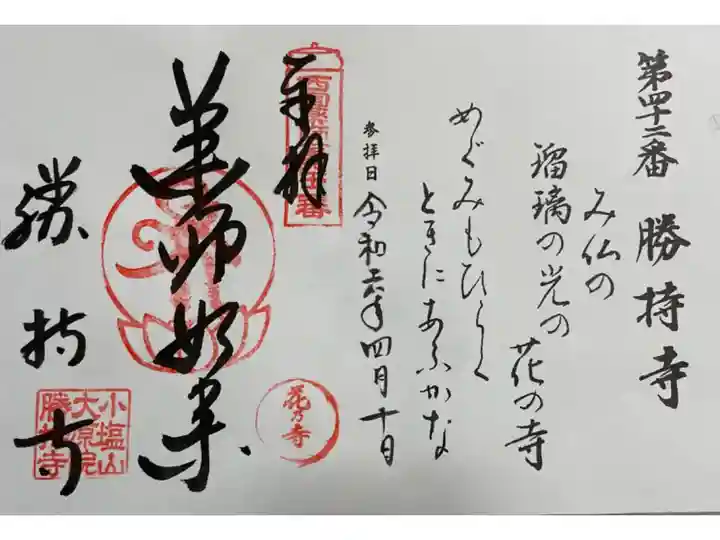 第四十二番 勝持寺
み仏の
瑠璃の光の
花の寺
めぐみもひらく
ときにあふかな
参拝日 令和六年四月十日
奉拝
西国薬師第四十二番
薬師如来
花乃寺
勝持寺
小塩山
大原院
勝持寺